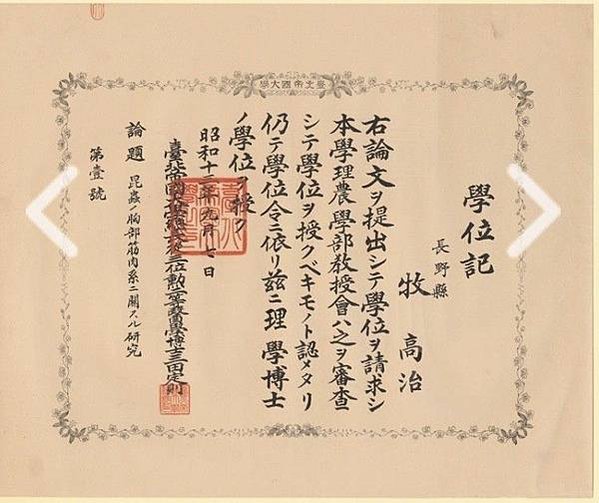 臺北帝國大學
學位記
長野縣
牧 高治
右論文ヲ提出シテ學位ヲ請求シ
本學理農學部教授會ハ之ヲ審査
シテ學位ヲ授クベキモノト認メタリ
仍テ學位令ニ依リ茲ニ理學博士
ノ學位ヲ授ク
昭和十 年九月 日
臺北帝國大學總長 三位勳 等醫學博士三田定則
論題 昆蟲ノ胸部筋肉系ニ關スル研究
第壹號